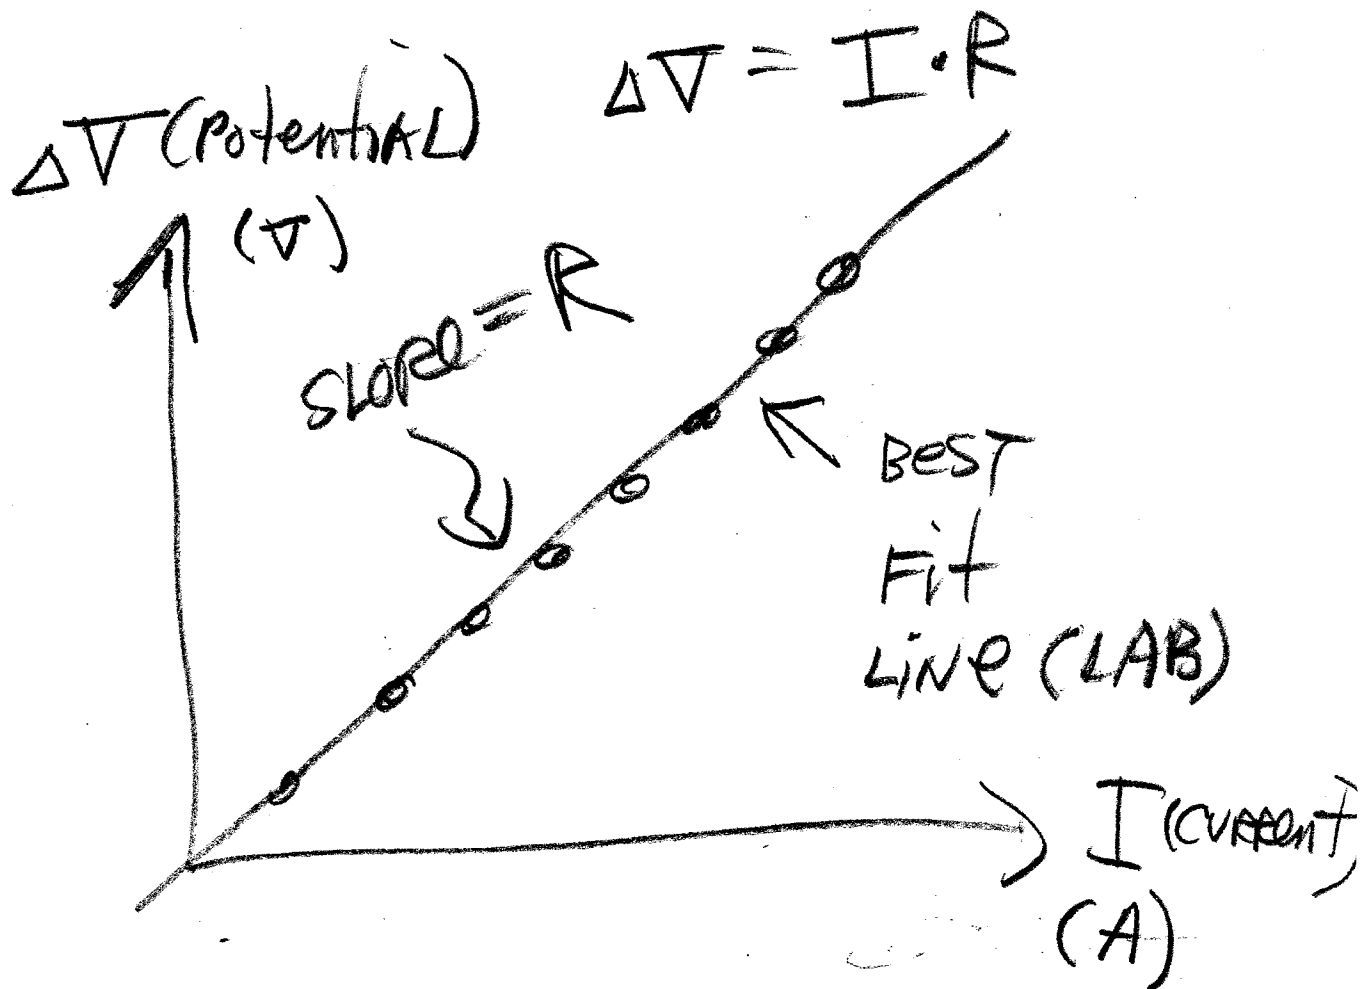 ΔV = I·R
ΔV (Potential)
(V)
SLOPe = R
BeST
Fit
LiNe (LAB)
I (CURRent)
(A)